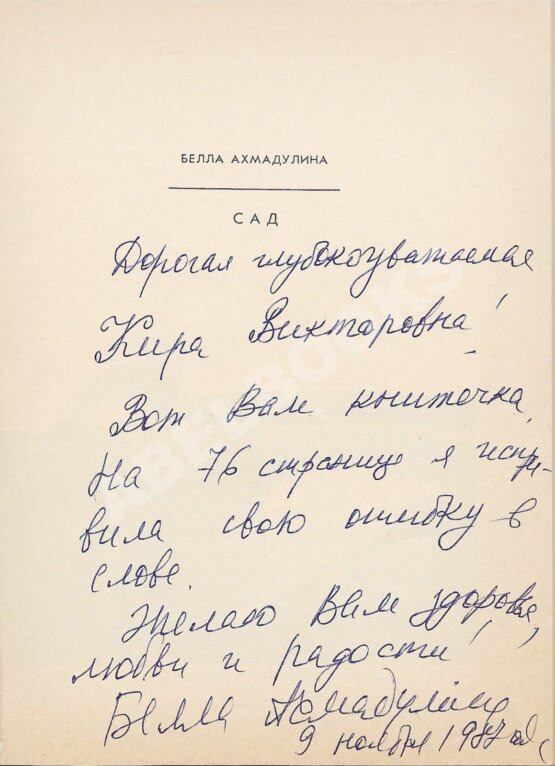 БЕЛЛА АХМАДУЛИНА
САД
Дорогая глубокоуважаемая
Кира Викторовна!
Вот Вам книжечка,
На 76 странице я испра-
вила свою ошибку в
слове.
Желаю Вам здоровья,
любви и радости!
Белла Ахмадулина
9 ноября 1987 года
ABELBOOKS